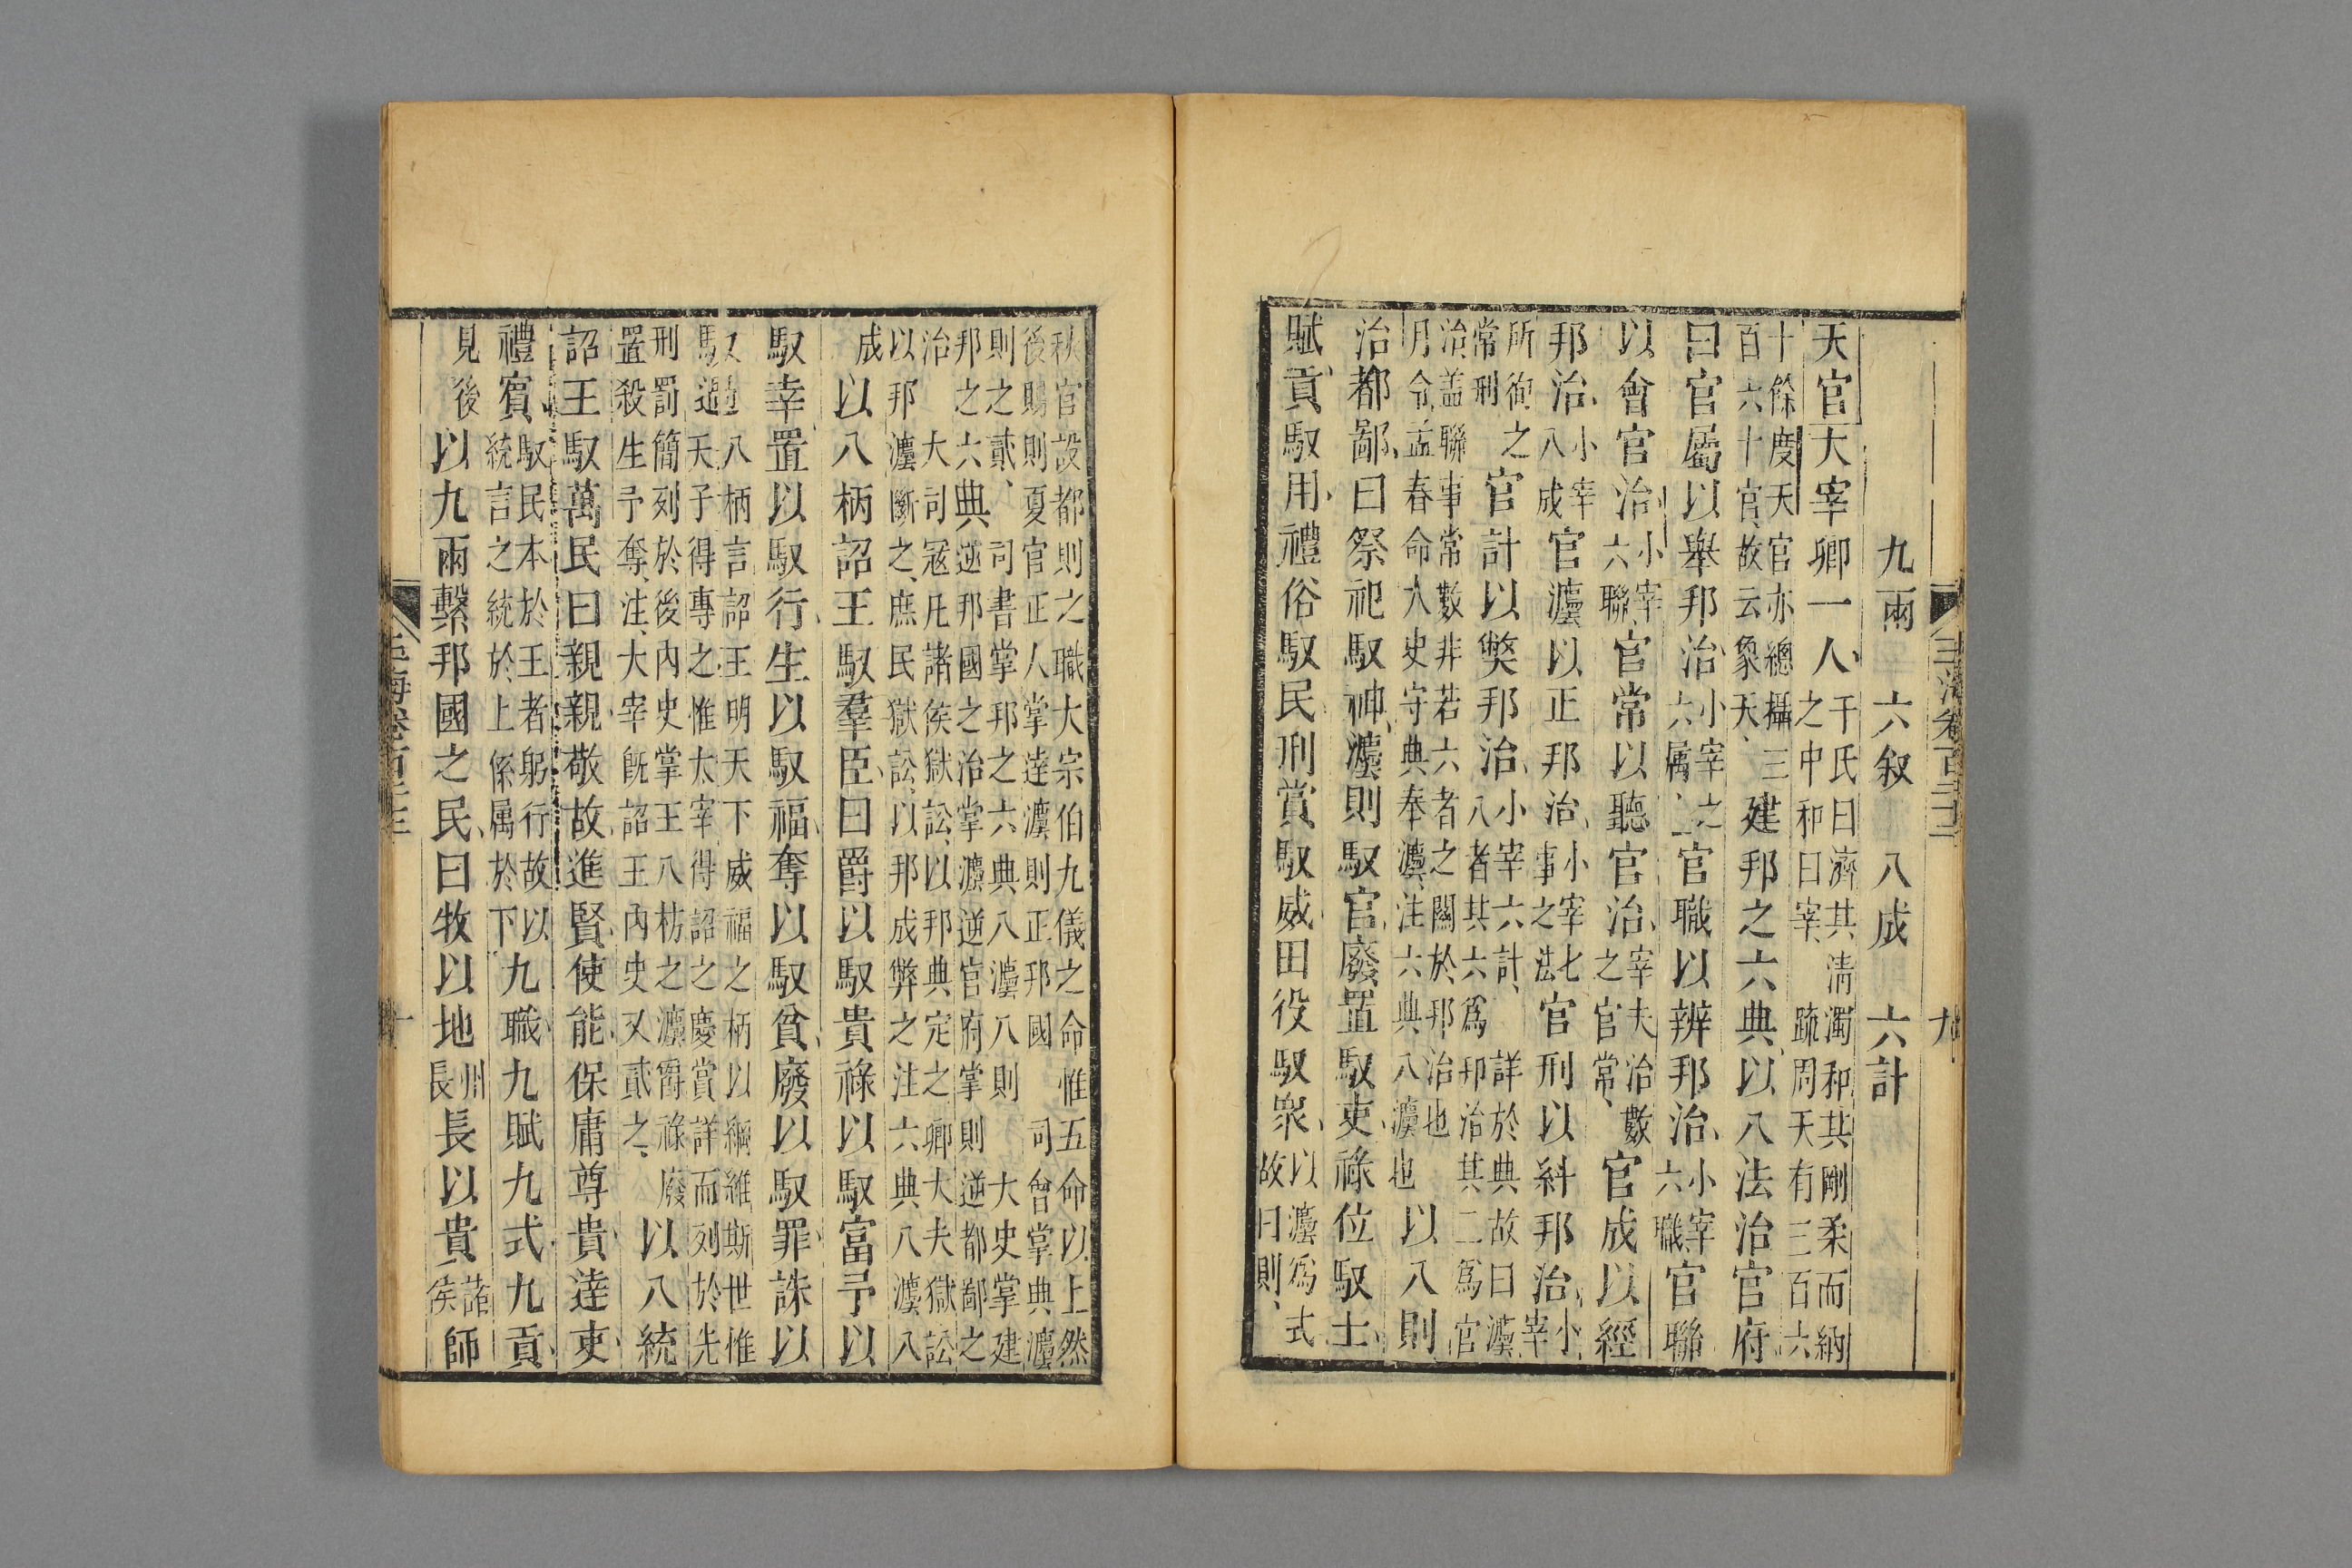 九
九兩　六叙　八成　六計
天官大宰卿一人干氏曰濟其淸濁和其剛柔而納之中和曰宰疏周天有三百六
十餘度天官亦總攝三百六十官故云象天建邦之六典以八法治官府
曰官屬以舉邦治小宰之六属官職以辨邦治小宰六職官聯
以會官治小宰六聯官常以聽官治宰夫治數之官常官成以經
邦治小宰八成官灋以正邦治小宰七事之法官刑以糾邦治小宰
所徇之常刑官計以弊邦治小宰六計詳於典故曰灋八者其六爲邦治其二爲官
治盖聯事常數非若六者之關於邦治也月令孟春命大史守典奉灋注六典八灋也以八則
治都鄙曰祭祀馭神灋則馭官廢置馭吏祿位馭士
賦貢馭用禮俗馭民刑賞馭威田役馭衆以灋爲式故曰則
秋官設都則之職大宗伯九儀之命惟五命以上然後賜則夏官正人掌達灋則正邦國司會掌典灋
則之貳司書掌邦之六典八灋八則大史掌建邦之六典逆邦國之治掌灋逆官府掌則逆都鄙之
治大司冦凡諸侯獄訟以邦典定之卿大夫獄訟以邦灋斷之庶民獄訟以邦成弊之注六典八灋八
成以八柄詔王馭羣臣曰爵以馭貴祿以馭富予以
馭幸置以馭行生以馭福奪以馭貧廢以馭罪誅以
馭過八柄言詔王明天下威福之柄以綱維斯世惟天子得專之惟太宰得詔之慶賞詳而列於先
刑罰簡列於後內史掌王八枋之灋爵祿廢置殺生予奪注大宰旣詔王內史又貳之以八統
詔王馭萬民曰親親敬故進賢使能保庸尊貴達吏
禮賓馭民本於王者躬行故以統言之統於上係属於下九職九賦九式九貢
見後以九兩繫邦國之民曰牧以地州長長以貴諸侯師